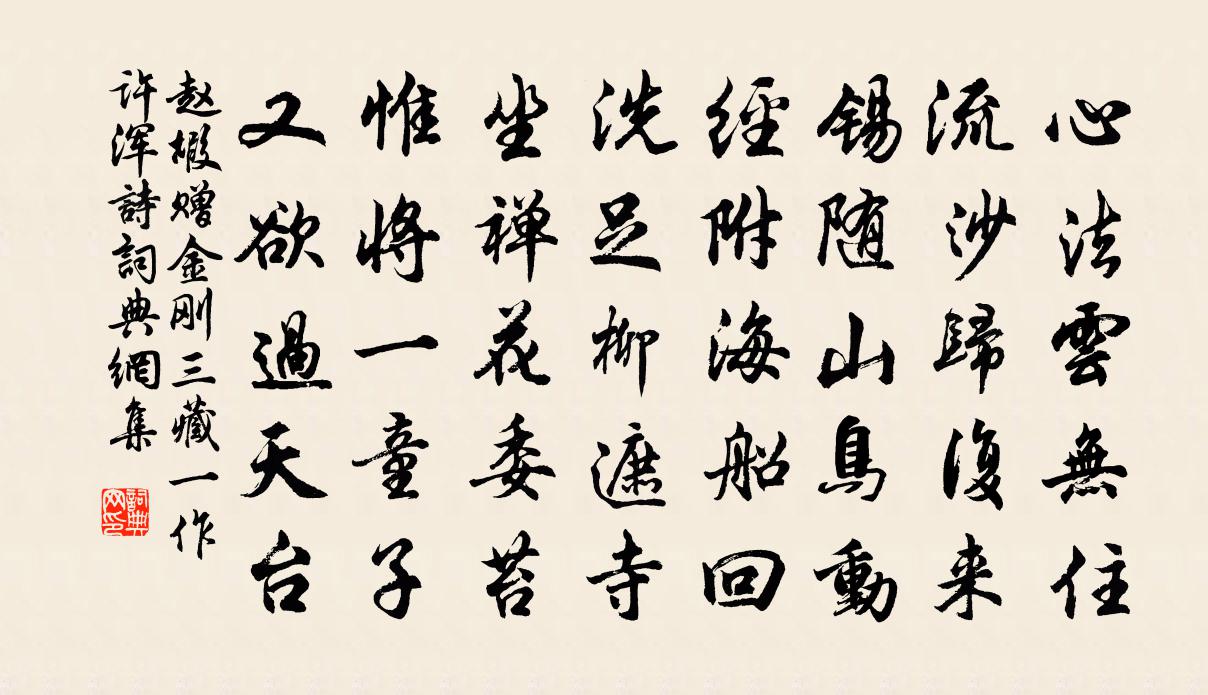 心法雲無住
流沙歸復来
錫随山鳥動
經附海船回
洗足柳遮寺
坐禅花委苔
惟將一童子
又欲過天台
赵嘏赠金刚三藏一作
许浑詩詞典網集
詞典
网印